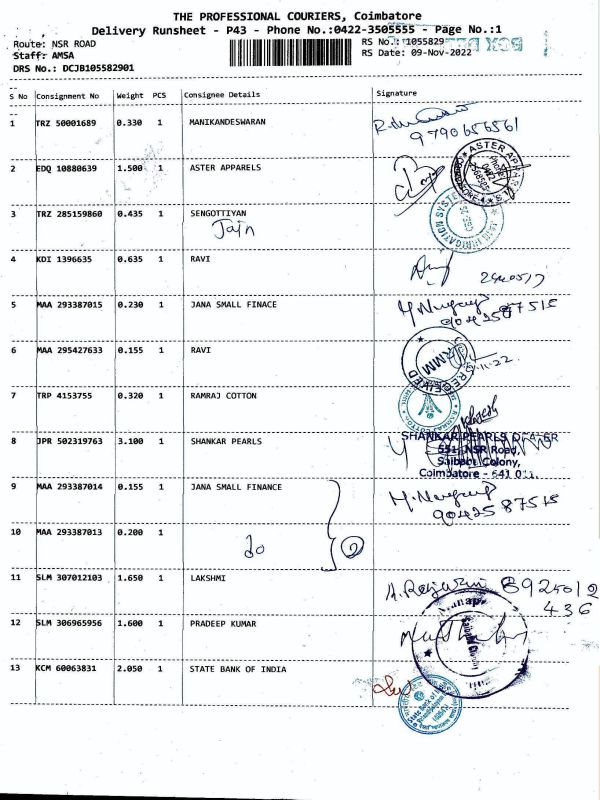 THE PROFESSIONAL COURIERS, Coimbatore
Delivery Runsheet - P43 - Phone No.:0422-3505555 - Page No.:1
Route: NSR ROAD
RS No.: 1055829
Staff: AMSA
RS Date: 09-Nov-2022
DRS No.: DCJB105582901
S No Consignment No Weight PCS Consignee Details Signature
1 TRZ 50001689 0.330 1 MANIKANDESWARAN
9790656561
2 EDQ 10880639 1.500 1 ASTER APPARELS
3 TRZ 285159860 0.435 1 SENGOTTIYAN
Jain
4 KDI 1396635 0.635 1 RAVI
5 MAA 293387015 0.230 1 JANA SMALL FINACE
6 MAA 295427633 0.155 1 RAVI
RECEIVED
7 TRP 4153755 0.320 1 RAMRAJ COTTON
8 JPR 502319763 3.100 1 SHANKAR PEARLS
SHANKAR PEARLS DEALER
551, NSR Road,
Saibaba Colony,
Coimbatore - 641 011.
9 MAA 293387014 0.155 1 JANA SMALL FINANCE
9042587515
10 MAA 293387013 0.200 1
do 2
11 SLM 307012103 1.650 1 LAKSHMI
8925012
436
12 SLM 306965956 1.600 1 PRADEEP KUMAR
13 KCM 60063831 2.050 1 STATE BANK OF INDIA